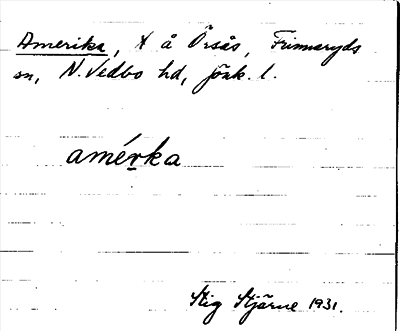 Amerika, X å Örsås, Frinnaryds
sn, N. Vedbo hd, Jönk. l.
amérka
Stig Stjärne 1931.